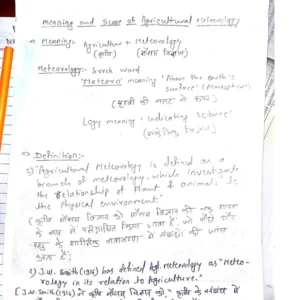 Meaning and Scope of Agricultural Meteorology
⇒ Meaning:- Agriculture + Meteorology
(कृषि) (मौसम विज्ञान)
Meteorology:- Greek Word
'Meteoro' meaning 'Above the earth's
surface' (Atmosphere)
(पृथ्वी की सतह से ऊपर)
Logy meaning 'indicating science'
⇒ Definition:-
1) "Agricultural Meteorology is defined as a
branch of meteorology, which investigate
the Relationship of Plant & animals to
the Physical environment"
(कृषि मौसम विज्ञान को मौसम विज्ञान की एक शाखा
के रूप में परिभाषित किया जाता है, जो पौधों और
के भौतिक वातावरण से संबंधों की जांच
करता है)
2) J.W. Smith (1916) has defined Ag. meteorology as "Meteo-
rology in its relation to Agriculture."
[J.W. Smith (1916) ने कृषि मौसम विज्ञान को, "कृषि के संबंध में